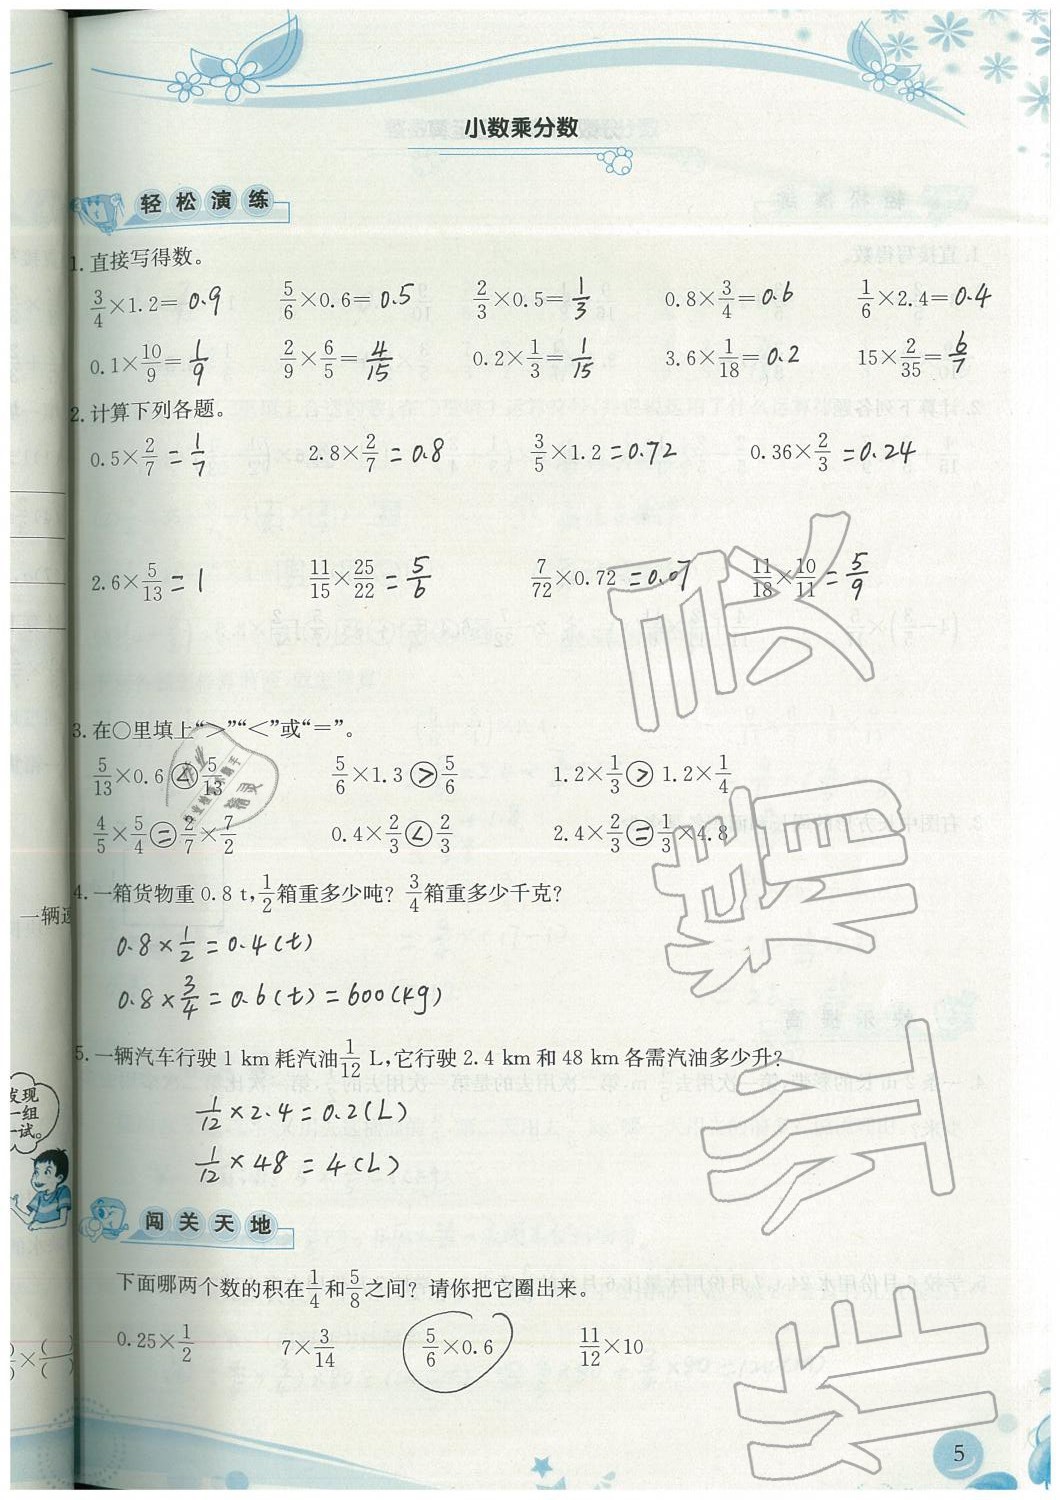 小数乘分数
轻松演练
1.直接写得数。
3/4×1.2=0.9 5/6×0.6=0.5 2/3×0.5=1/3 0.8×3/4=0.6 1/6×2.4=0.4
0.1×10/9=1/9 2/9×6/5=4/15 0.2×1/3=1/15 3.6×1/18=0.2 15×2/35=6/7
2.计算下列各题。
0.5×2/7=1/7 2.8×2/7=0.8 3/5×1.2=0.72 0.36×2/3=0.24
2.6×5/13=1 11/15×25/22=5/6 7/72×0.72=0.07 11/18×10/11=5/9
3.在○里填上“>”“<”或“=”。
5/13×0.6<5/13 5/6×1.3>5/6 1.2×1/3>1.2×1/4
4/5×5/4=2/7×7/2 0.4×2/3<2/3 2.4×2/3=1/3×4.8
4.一箱货物重0.8 t,1/2箱重多少吨?3/4箱重多少千克?
一辆
0.8×1/2=0.4(t)
0.8×3/4=0.6(t)=600(kg)
5.一辆汽车行驶1 km耗汽油1/12 L,它行驶2.4 km和48 km各需汽油多少升?
发现
一组
一试。
1/12×2.4=0.2(L)
1/12×48=4(L)
闯关天地
下面哪两个数的积在1/4和5/8之间?请你把它圈出来。
0.25×1/2 7×3/14 5/6×0.6 11/12×10
5
作业精灵